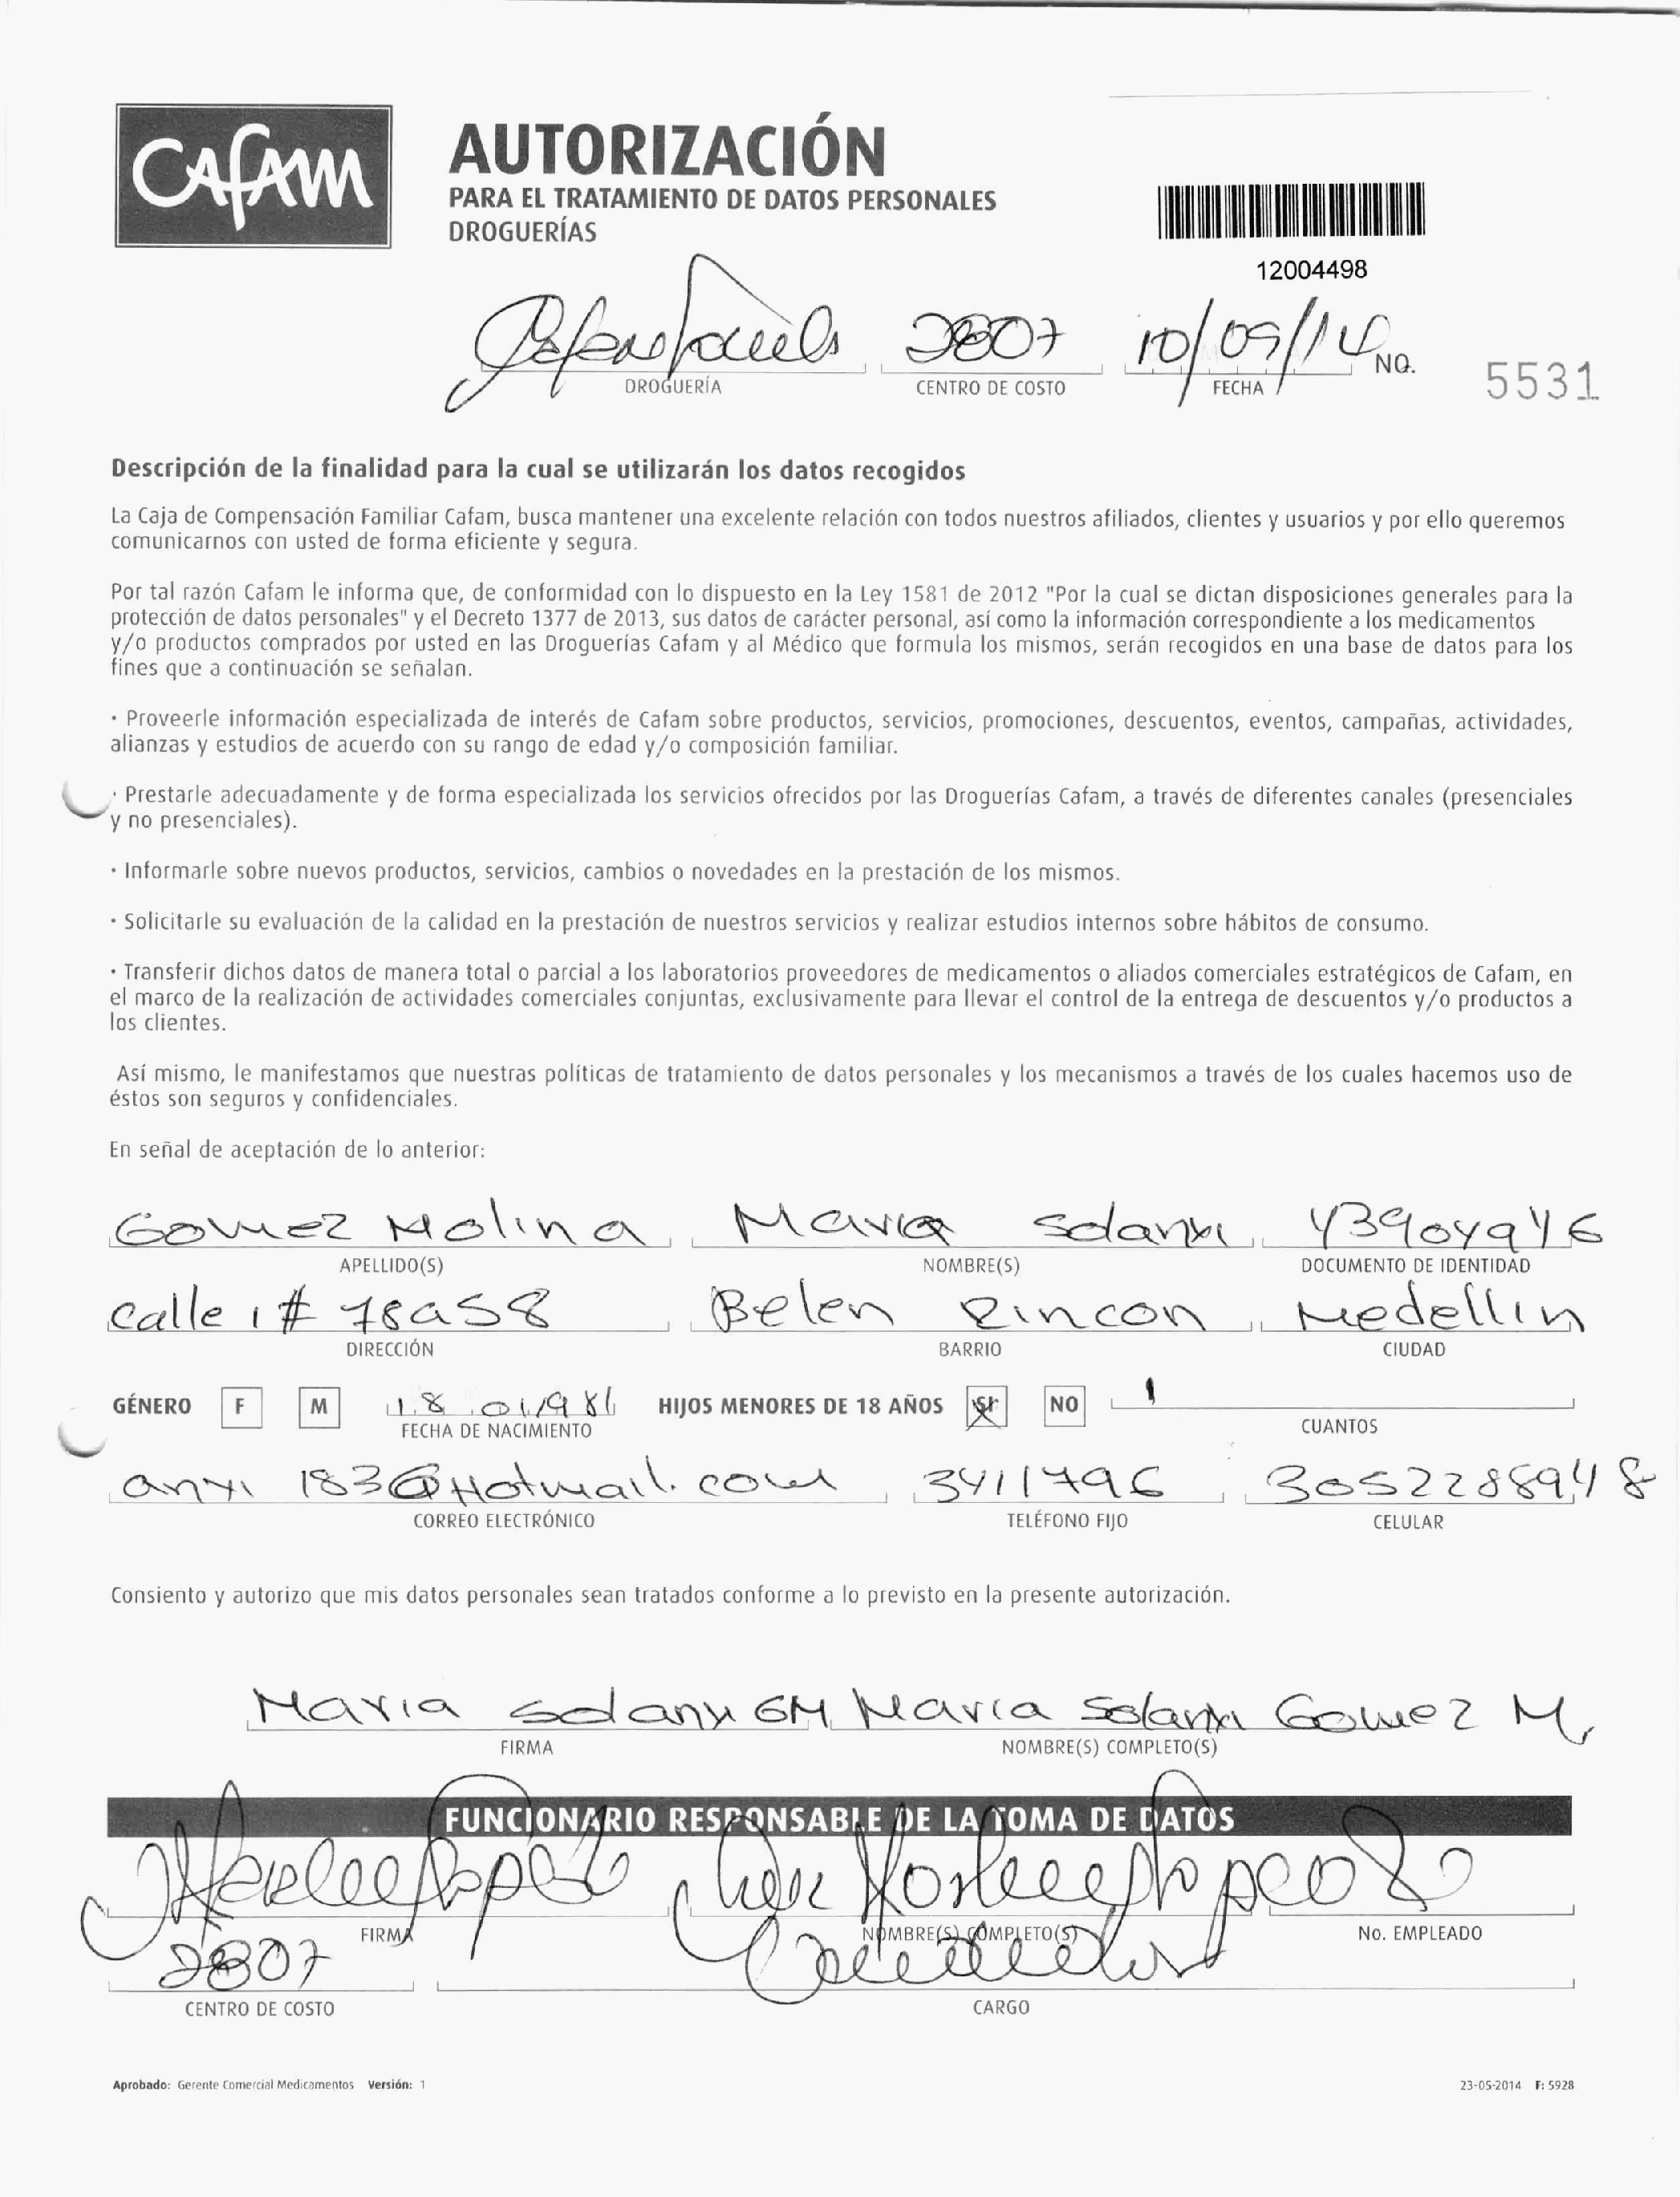 CAFAM
AUTORIZACIÓN
PARA EL TRATAMIENTO DE DATOS PERSONALES
DROGUERÍAS
12004498
2807 10/09/14 NO. 5531
DROGUERÍA CENTRO DE COSTO FECHA
Descripción de la finalidad para la cual se utilizarán los datos recogidos
La Caja de Compensación Familiar Cafam, busca mantener una excelente relación con todos nuestros afiliados, clientes y usuarios y por ello queremos
comunicarnos con usted de forma eficiente y segura.
Por tal razón Cafam le informa que, de conformidad con lo dispuesto en la Ley 1581 de 2012 "Por la cual se dictan disposiciones generales para la
protección de datos personales" y el Decreto 1377 de 2013, sus datos de carácter personal, así como la información correspondiente a los medicamentos
y/o productos comprados por usted en las Droguerías Cafam y al Médico que formula los mismos, serán recogidos en una base de datos para los
fines que a continuación se señalan.
· Proveerle información especializada de interés de Cafam sobre productos, servicios, promociones, descuentos, eventos, campañas, actividades,
alianzas y estudios de acuerdo con su rango de edad y/o composición familiar.
· Prestarle adecuadamente y de forma especializada los servicios ofrecidos por las Droguerías Cafam, a través de diferentes canales (presenciales
y no presenciales).
· Informarle sobre nuevos productos, servicios, cambios o novedades en la prestación de los mismos.
· Solicitarle su evaluación de la calidad en la prestación de nuestros servicios y realizar estudios internos sobre hábitos de consumo.
· Transferir dichos datos de manera total o parcial a los laboratorios proveedores de medicamentos o aliados comerciales estratégicos de Cafam, en
el marco de la realización de actividades comerciales conjuntas, exclusivamente para llevar el control de la entrega de descuentos y/o productos a
los clientes.
Así mismo, le manifestamos que nuestras políticas de tratamiento de datos personales y los mecanismos a través de los cuales hacemos uso de
éstos son seguros y confidenciales.
En señal de aceptación de lo anterior:
Gomez Molina Maria Solanyi 43904946
APELLIDO(S) NOMBRE(S) DOCUMENTO DE IDENTIDAD
calle 1 # 78a58 Belen Rincon Medellin
DIRECCIÓN BARRIO CIUDAD
GÉNERO F M 18 01 1981 HIJOS MENORES DE 18 AÑOS SI NO 1
FECHA DE NACIMIENTO CUANTOS
anyi 183@Hotmail.com 3411796 3052288948
CORREO ELECTRÓNICO TELÉFONO FIJO CELULAR
Consiento y autorizo que mis datos personales sean tratados conforme a lo previsto en la presente autorización.
Maria Solanyi GM Maria Solanyi Gomez M.
FIRMA NOMBRE(S) COMPLETO(S)
FUNCIONARIO RESPONSABLE DE LA TOMA DE DATOS
FIRMA NOMBRE(S) COMPLETO(S) No. EMPLEADO
2807
CENTRO DE COSTO CARGO
Aprobado: Gerente Comercial Medicamentos Versión: 1 23-05-2014 F: 5928